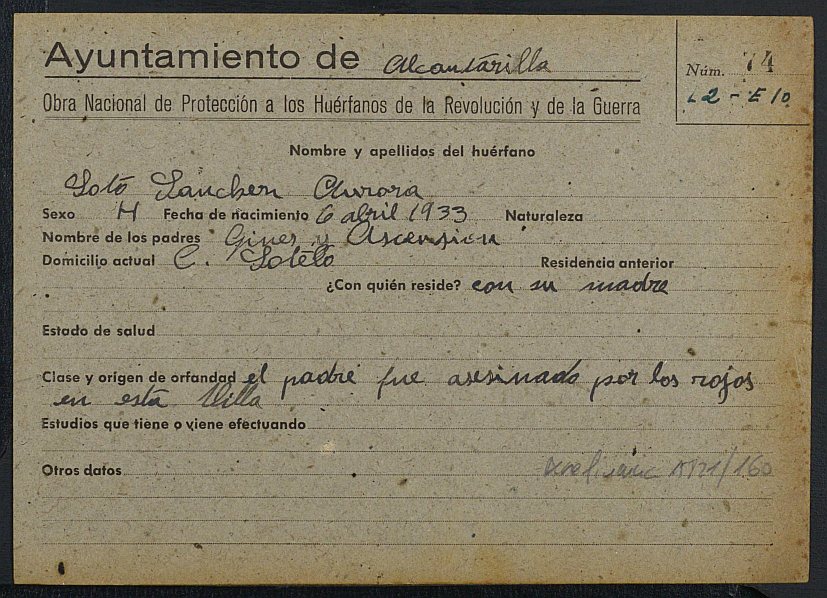 Ayuntamiento de Alcantarilla
Núm. 74
L2-E10
Obra Nacional de Protección a los Huérfanos de la Revolución y de la Guerra
Nombre y apellidos del huérfano
Soto Sanchez Aurora
Sexo H Fecha de nacimiento 6 abril 1933 Naturaleza
Nombre de los padres Gines y Ascension
Domicilio actual C. Sotelo Residencia anterior
¿Con quién reside? con su madre
Estado de salud
Clase y origen de orfandad el padre fue asesinado por los rojos
en esta Villa
Estudios que tiene o viene efectuando
Otros datos
/160